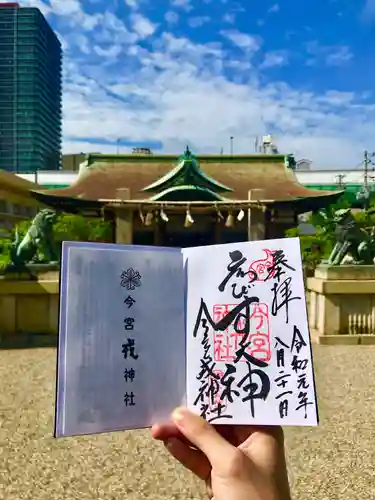 今宮戎神社
奉拝
令和元年
八月二十一日
今宮戎神社